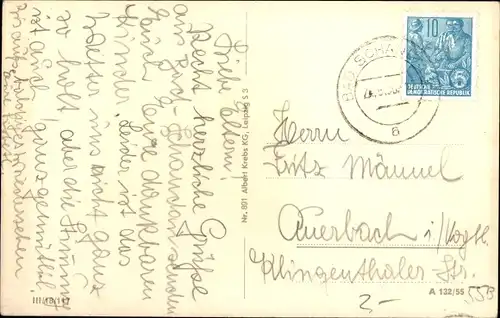 Liebe Eltern!
Recht herzliche Grüße
aus Bad Schandau senden
Euch Eure dankbaren
Kinder. Leider ist das
Wetter uns nicht ganz
so hold, aber die Stimmung
ist auch ganz gemütlich.
Wiedersehen
Nr. 801 Albert Krebs KG, Leipzig S 3
III/18/117
10
DEUTSCHE
DEMOKRATISCHE REPUBLIK
BAD SCHANDAU
a
Herrn
Fritz Männel
Auerbach i/Vogtl.
Klingenthaler Str.
55B
A 122/55
2-